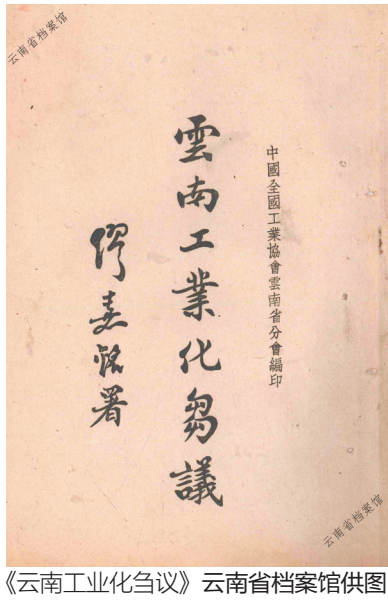 云南省档案馆
中國全國工業協會雲南省分會編印
雲南工業化芻議
繆嘉銘署
云南省档案馆
《云南工业化刍议》云南省档案馆供图